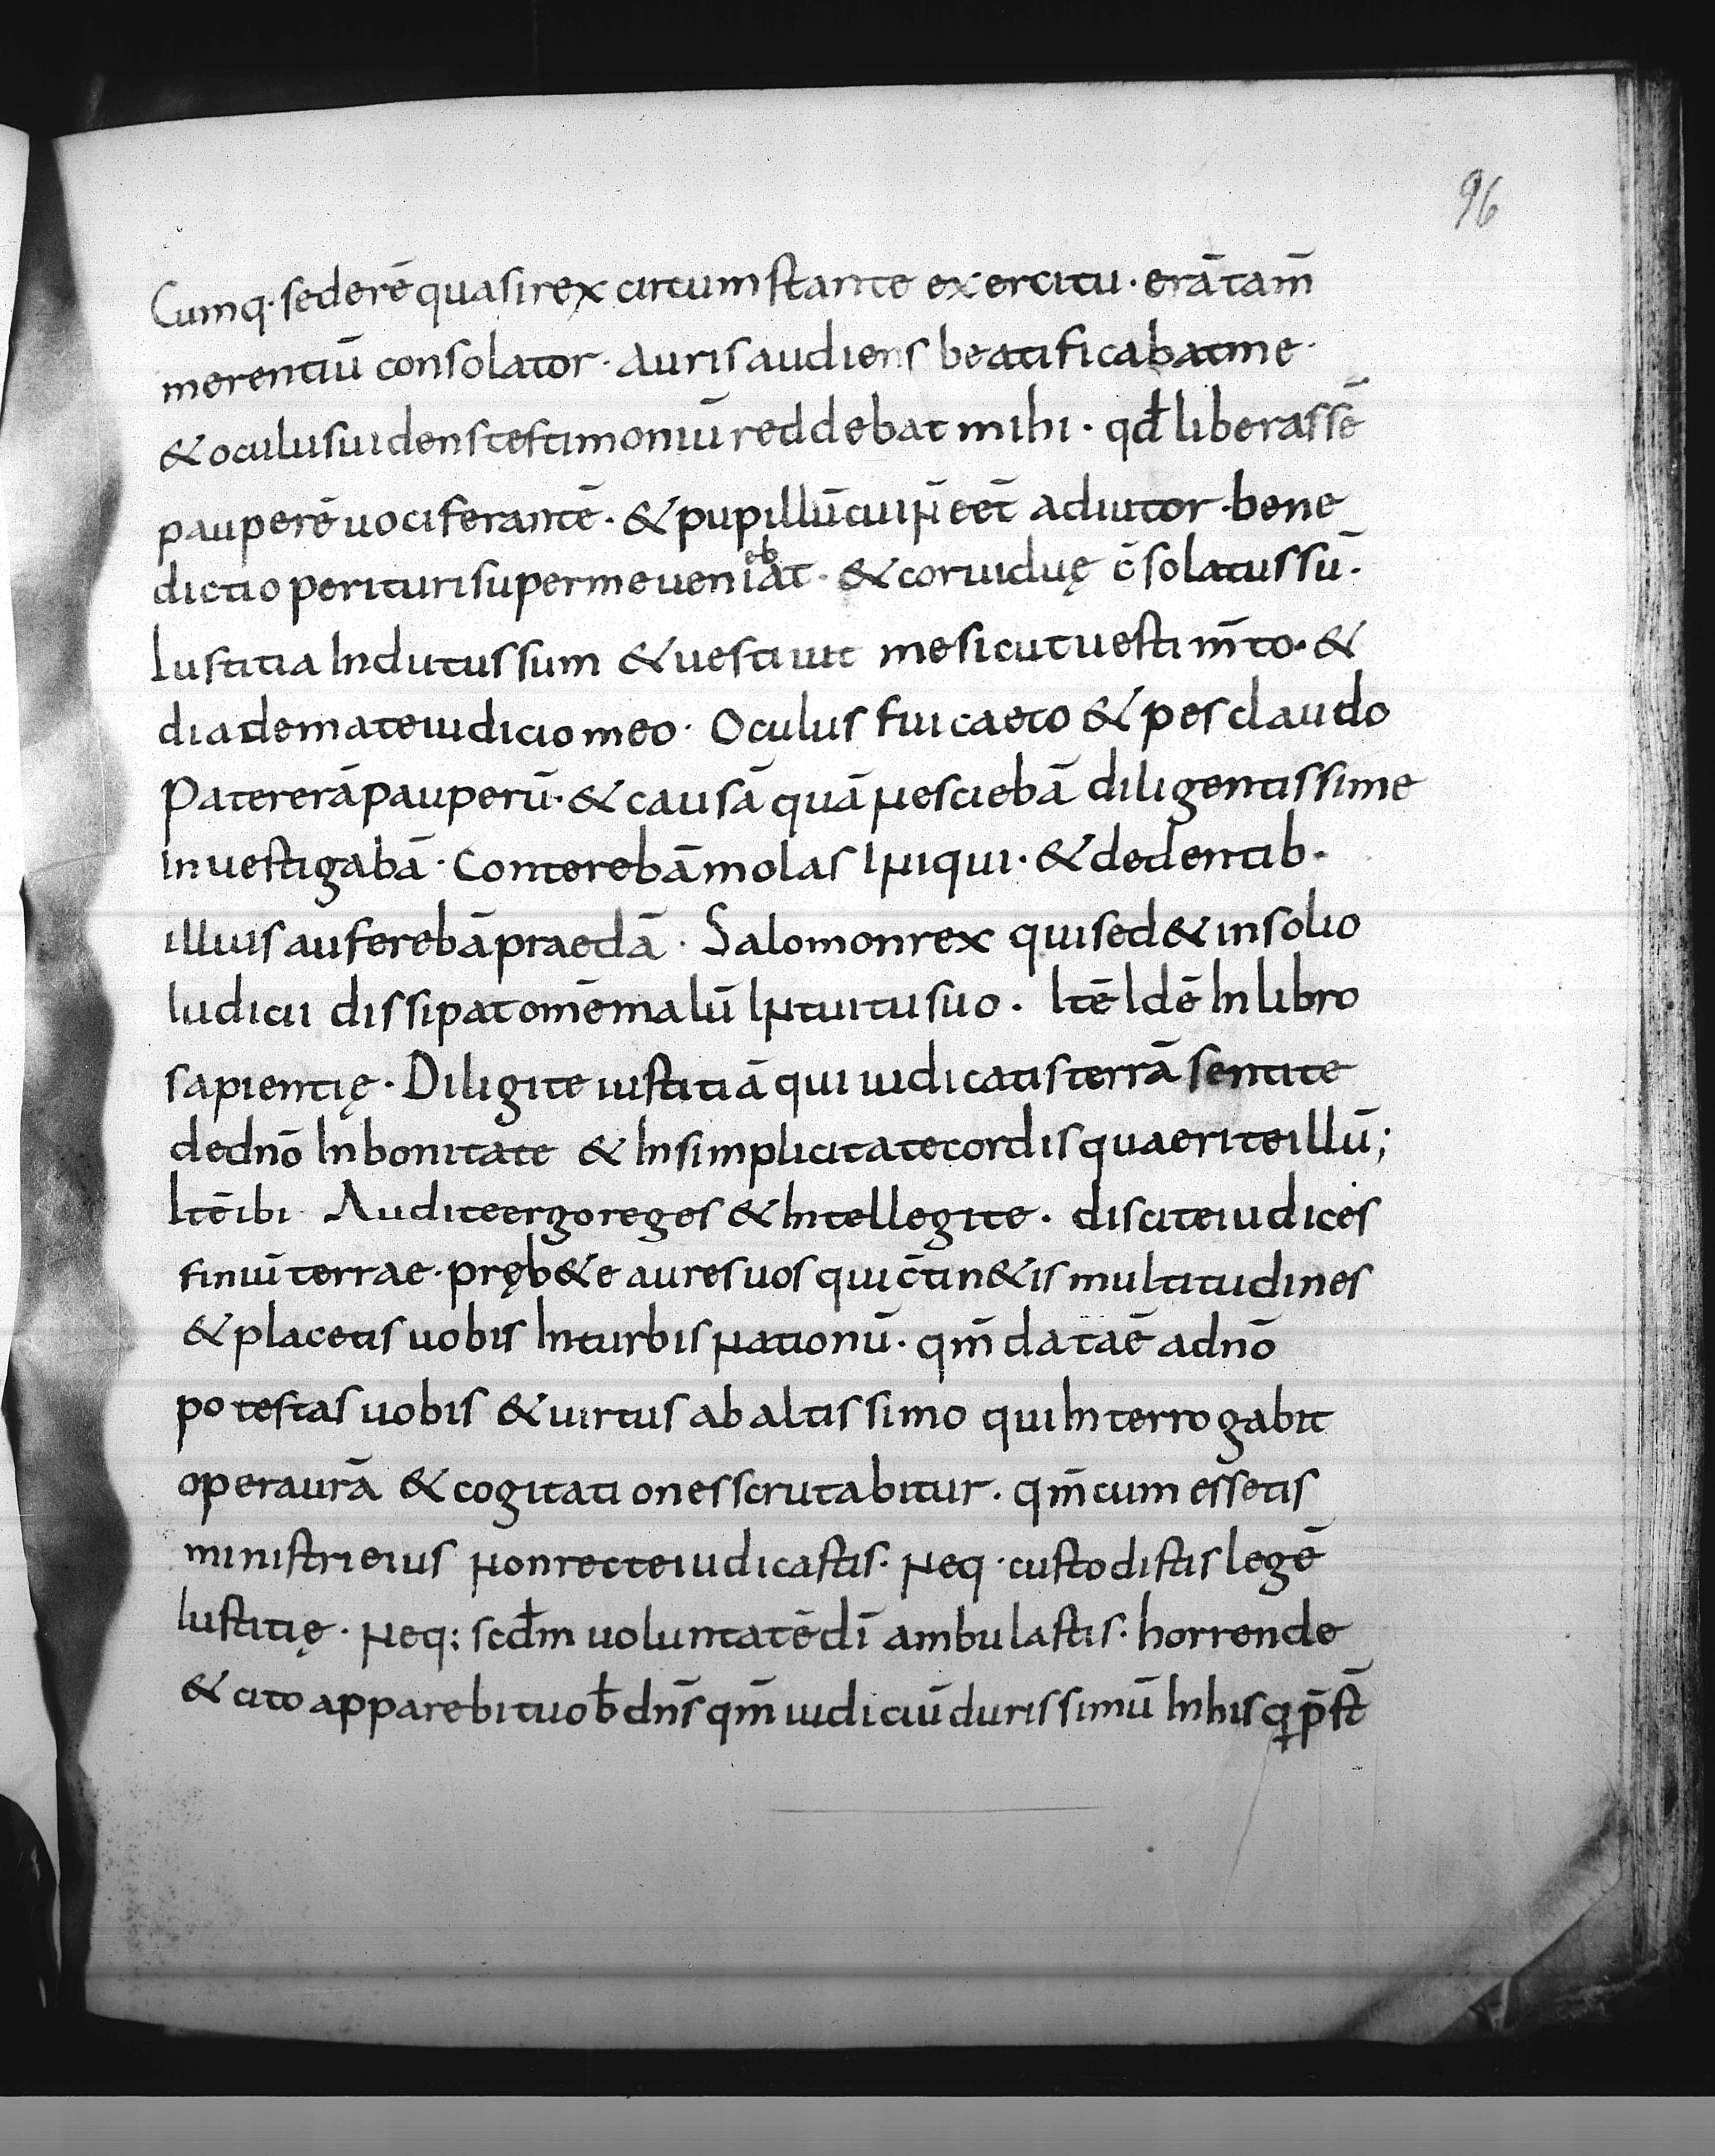 96
Cumq· sederē quasi rex circumstante exercitu· erā tam̄
merentiū consolator· Auris audiens beatificabat me·
& oculus uidens testimoniū reddebat mihi· qđ liberassē
pauperē uociferantē· & pupillū cui ñ eēt adiutor· bene
dictio perituri super me ueniebat· & cor uiduę c̄solatus sū·
Iustitia Indutus sum & uestiuit me sicut uestim̄to· &
diademate iudicio meo· Oculus fui caeco & pes claudo
Pater erā pauperū· & causā quā nesciebā diligentissime
inuestigabā· Conterebā molas Iniqui· & de dentib·
illius auferebā praedā· Salomon rex qui sed& in solio
Iudicii dissipat om̄e malū Intuitu suo· Itē Idē In libro
sapientię· Diligite iustitiā qui iudicatis terrā sentite
de dn̄o In bonitate & In simplicitate cordis quaerite illū;
Itē ibi Audite ergo reges & Intellegite· discite iudices
finiū terrae· pręb&e aures uos qui c̄tin&is multitudines
& placetis uobis In turbis nationū· qm̄ data ē a dn̄o
potestas uobis & uirtus ab altissimo qui Interrogabit
opera ur̄a & cogitationes scrutabitur· qm̄ cum essetis
ministri eius non recte iudicastis· neq· custodistis legē
Iustitię· neq: scđm uoluntatē dī ambulastis· horrende
& cito apparebit uob̄ dn̄s qm̄ iudiciū durissimū In his q p̄st̄